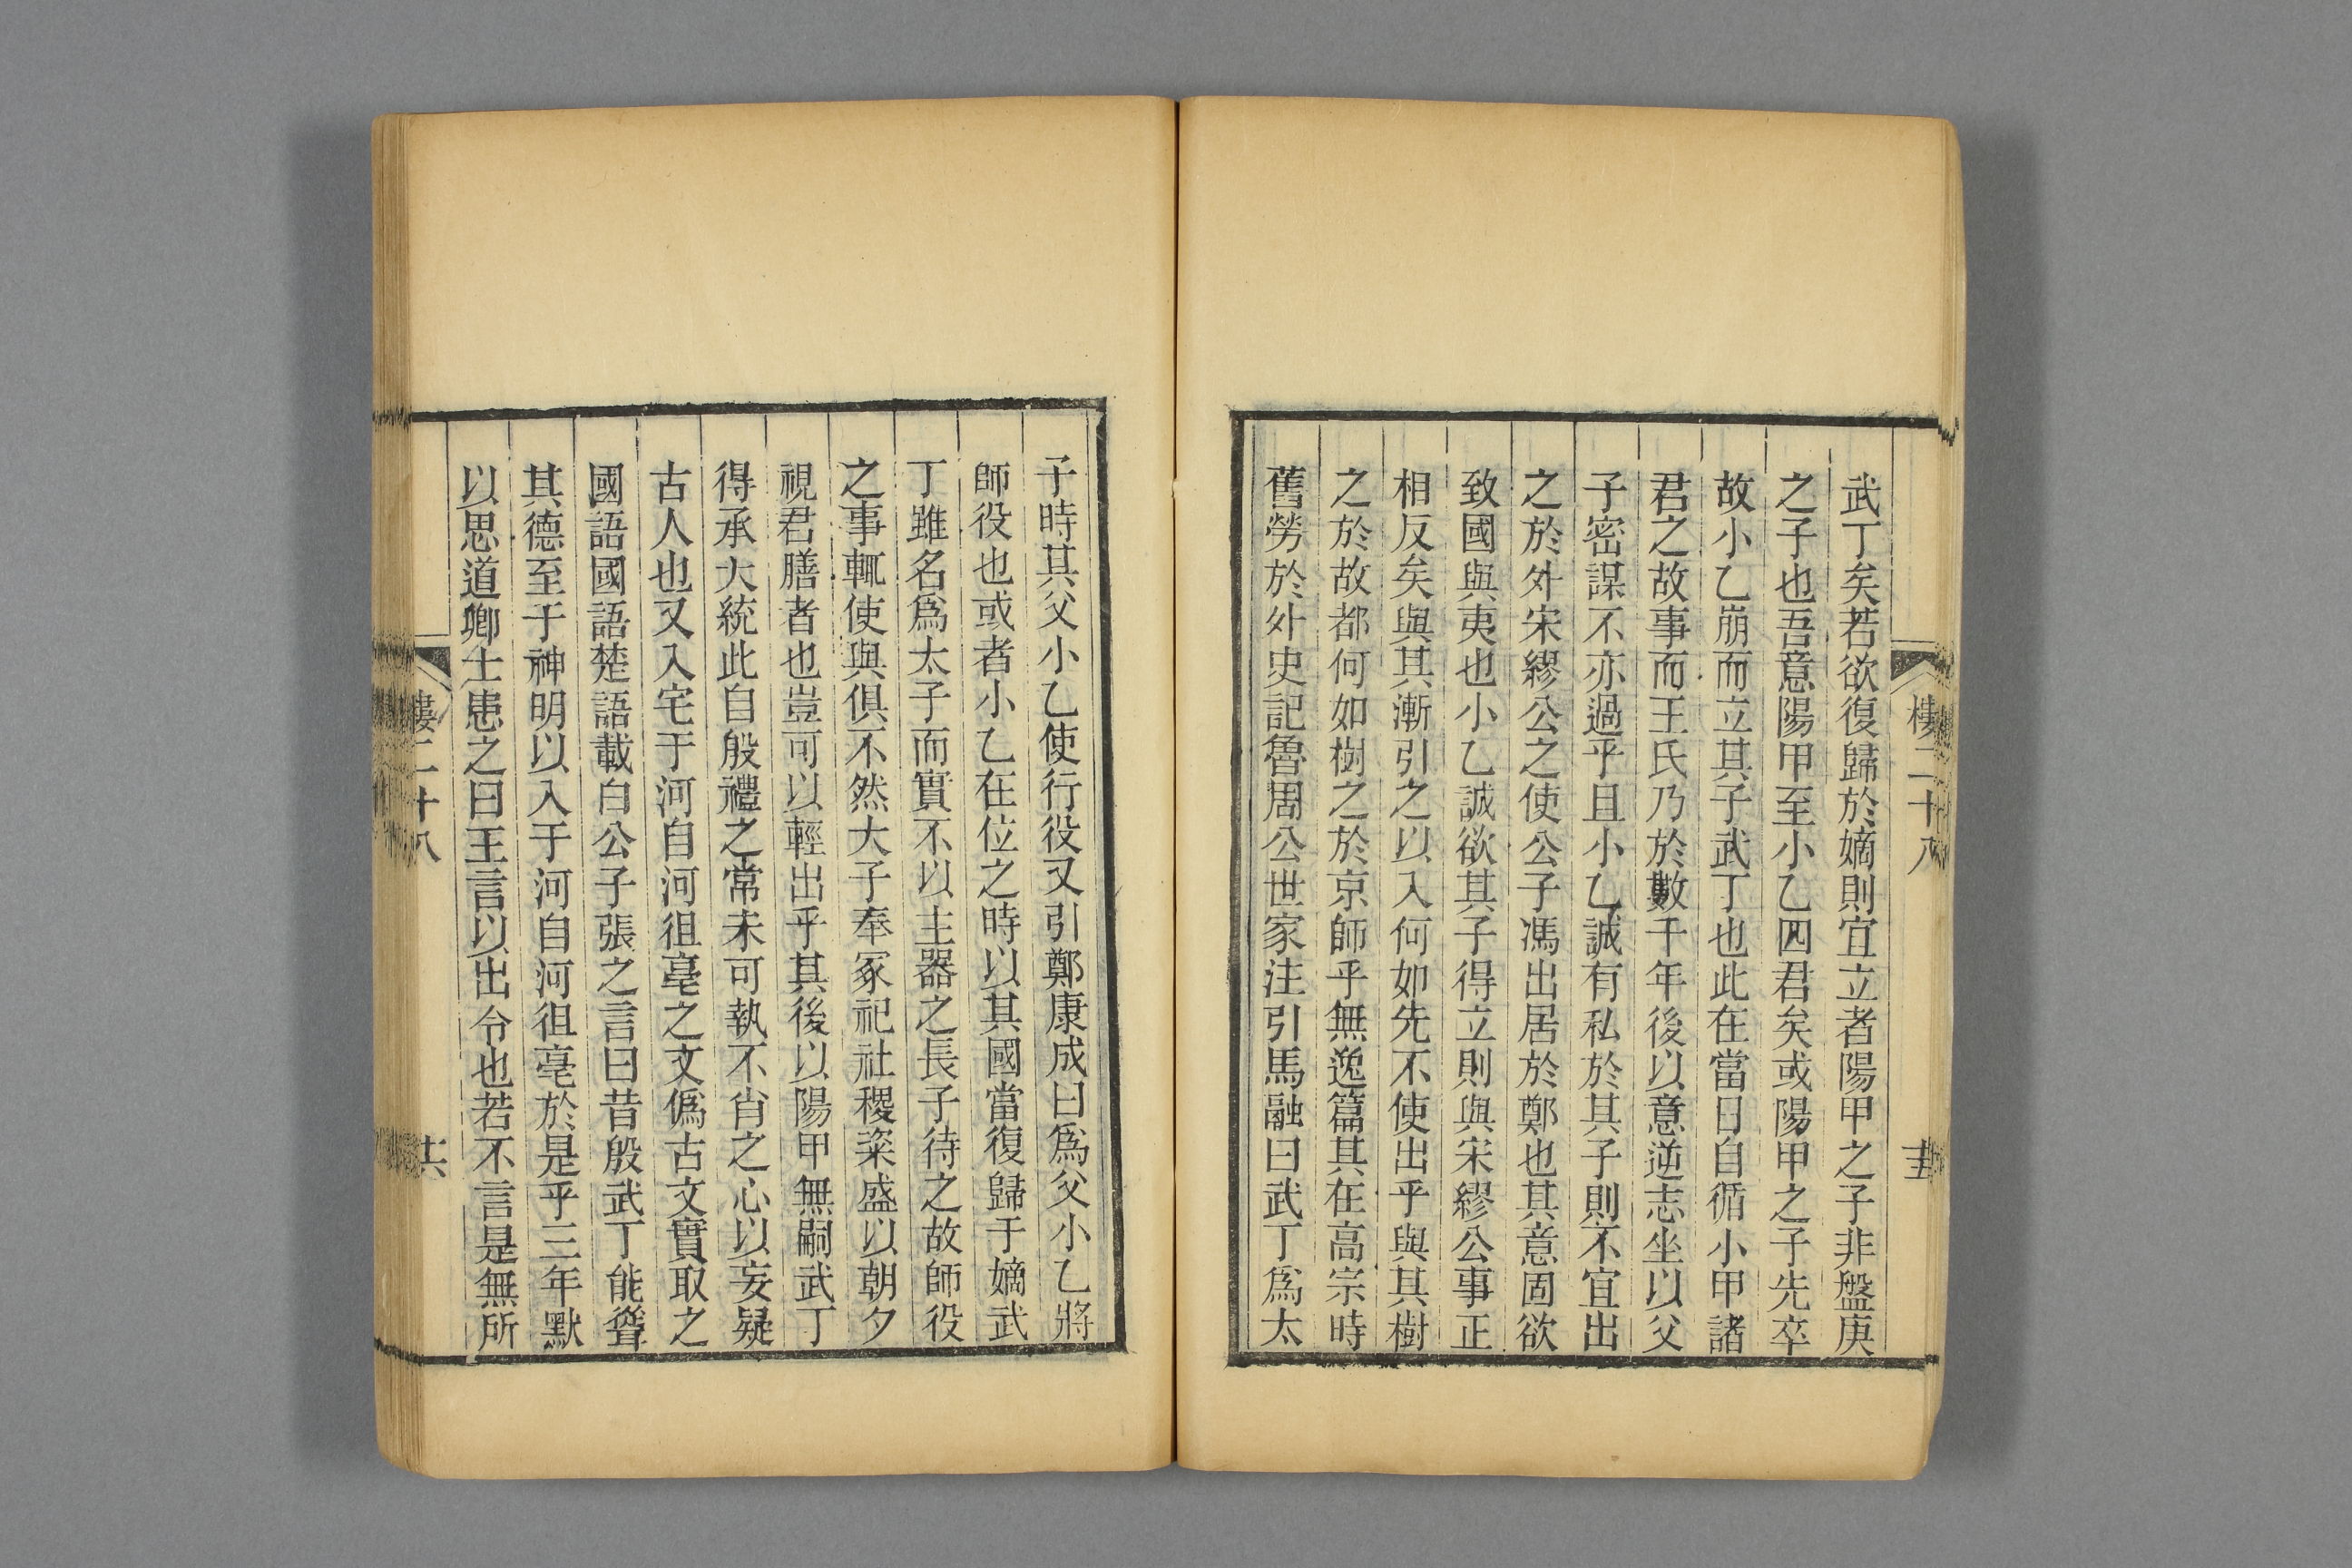 武丁矣若欲復歸於嫡則宜立者陽甲之子非盤庚
之子也吾意陽甲至小乙四君矣或陽甲之子先卒
故小乙崩而立其子武丁也此在當日自循小甲諸
君之故事而王氏乃於數千年後以意逆志坐以父
子密謀不亦過乎且小乙誠有私於其子則不宜出
之於外宋繆公之使公子馮出居於鄭也其意固欲
致國與夷也小乙誠欲其子得立則與宋繆公事正
相反矣與其漸引之以入何如先不使出乎與其樹
之於故都何如樹之於京師乎無逸篇其在高宗時
舊勞於外史記魯周公世家注引馬融曰武丁爲太
樓二十八
子時其父小乙使行役又引鄭康成曰爲父小乙將
師役也或者小乙在位之時以其國當復歸于嫡武
丁雖名爲太子而實不以主器之長子待之故師役
之事輒使與俱不然大子奉冢祀社稷粢盛以朝夕
視君膳者也豈可以輕出乎其後以陽甲無嗣武丁
得承大統此自殷禮之常未可執不肖之心以妄疑
古人也又入宅于河自河徂亳之文僞古文實取之
國語國語楚語載白公子張之言曰昔殷武丁能聳
其德至于神明以入于河自河徂亳於是乎三年默
以思道卿士患之曰王言以出令也若不言是無所
樓二十八